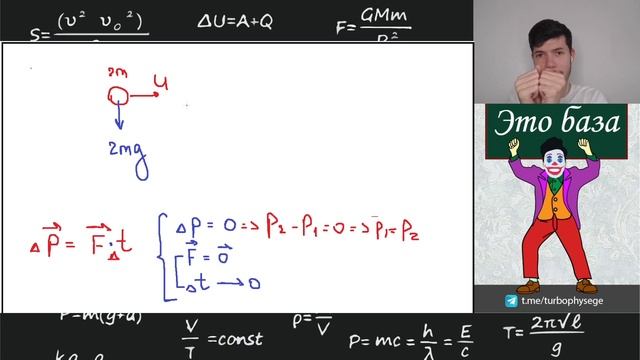 S= (υ² υ₀²)
ΔU=A+Q
F= GMm / R²
2m
U
2mg
Это база
ΔP⃗ = F⃗·Δt
ΔP = 0 => P₂ - P₁ = 0 => P₁ = P₂
F⃗ = 0⃗
Δt → 0
t.me/turbophysege
P=m(g+a)
V/T =const
P= /V
P=mc= h/λ = E/c
T= 2π√ℓ / g